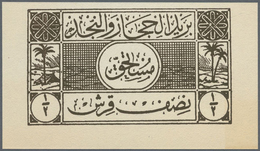 بريد الحجاز والنجد
مستحق
١/٢
١/٢
نصف قرش